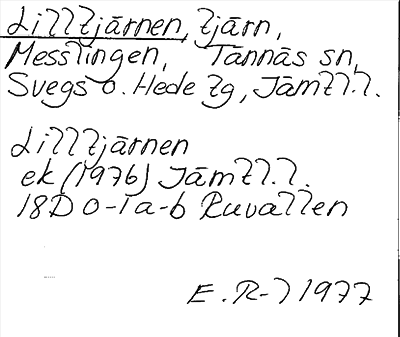 Lilltjärnen, tjärn,
Messlingen, Tännäs sn,
Svegs o. Hede tg, Jämtl.l.
Lilltjärnen
ek (1976) Jämtl.l.
18D 0-1a-b Ruvallen
E.R-l 1977